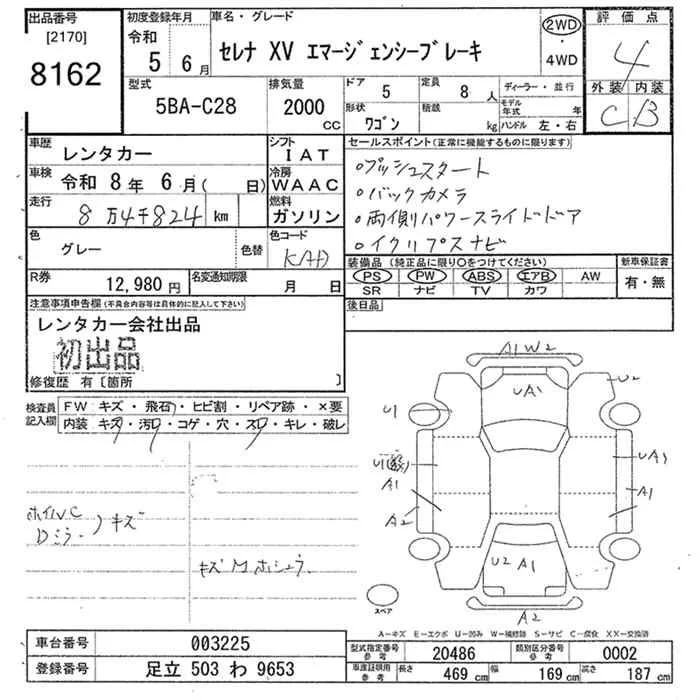 出品番号
[2170]
8162
初度登録年月
令和
5 6月
車名・グレード
セレナ XV エマージェンシーブレーキ
2WD
・
4WD
評価点
4
外装 内装
C B
型式
5BA-C28
排気量
2000
cc
ドア
5
定員
8人
形状
ワゴン
積載
kg
ディーラー・並行
モデル年式 年
ハンドル 左・右
車歴
レンタカー
シフト
IAT
車検
令和 8年 6月( 日)
冷房
WAAC
走行
8万4千824 km
燃料
ガソリン
色
グレー
色替
色コード
KAD
R券
12,980円
名変通知期限
月 日
セールスポイント(正常に機能するものに限ります)
○プッシュスタート
○バックカメラ
○両側パワースライドドア
○イクリプスナビ
装備品(純正品に限り○をつけてください)
PS PW ABS エアB AW
SR ナビ TV カワ
新車保証書
有・無
後日品
注意事項申告欄(不具合内容等は具体的に記入して下さい)
レンタカー会社出品
初出品
修復歴 有〔箇所 〕
検査員
記入欄
FW キズ・飛石・ヒビ割・リペア跡・×要
内装 キズ・汚れ・コゲ・穴・スレ・キレ・破レ
ホイルC
Dミラー
キズ
キズMホシュウ
A1W2
UA1
U2
U1
U1
A1
A2
UA1
A1
A2
U2 A1
A2
スペア
A-キズ E-エクボ U-凹み W-補修跡 S-サビ C-腐食 XX-交換済
車台番号
003225
登録番号
足立 503 わ 9653
型式指定番号
参考
20486
類別区分番号
参考
0002
車庫証明用
参考
長さ
469 cm
幅
169 cm
高さ
187 cm